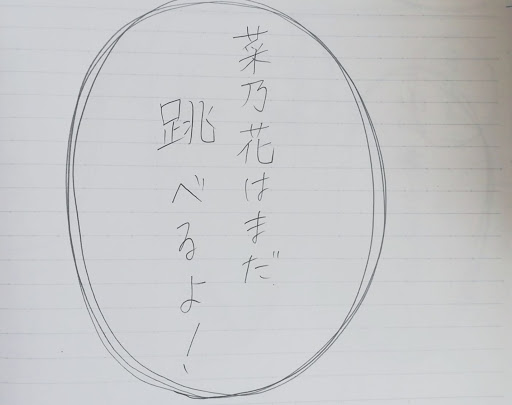 菜乃花はまだ
跳べるよ!